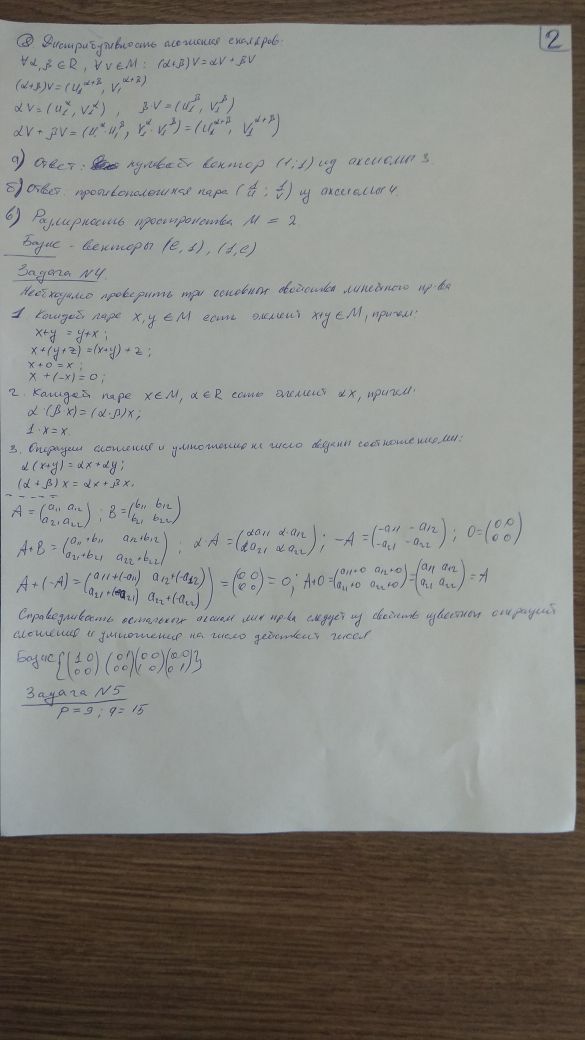 2
⑧ Дистрибутивность сложения скаляров.
∀ α, β ∈ R, ∀ V ∈ M: (α+β)V = αV + βV
(α+β)V = (U₁^(α+β), V₁^(α+β))
αV = (U₁^α, V₁^α), β·V = (U₁^β, V₁^β)
αV + βV = (U₁^α·U₁^β, V₁^α·V₁^β) = (U₁^(α+β), V₁^(α+β))
а) Ответ: нулевой вектор (1;1) из аксиомы 3.
б) Ответ: противоположная пара (1/u; 1/v) из аксиомы 4.
в) Размерность пространства M = 2.
Базис - векторы (e, 1), (1, e)
Задача N4
Необходимо проверить три основных свойства линейного пр-ва
1. Каждой паре x, y ∈ M есть элемент x+y ∈ M, причем:
x+y = y+x;
x+(y+z) = (x+y)+z;
x+0 = x;
x+(-x) = 0;
2. Каждой паре x ∈ M, α ∈ R есть элемент αx, причем:
α·(β·x) = (α·β)x;
1·x = x.
3. Операции сложения и умножения на число связаны соотношениями:
α(x+y) = αx+αy;
(α+β)x = αx+βx.
A = (a₁₁ a₁₂ / a₂₁ a₂₂); B = (b₁₁ b₁₂ / b₂₁ b₂₂)
A+B = (a₁₁+b₁₁ a₁₂+b₁₂ / a₂₁+b₂₁ a₂₂+b₂₂); αA = (αa₁₁ αa₁₂ / αa₂₁ αa₂₂); -A = (-a₁₁ -a₁₂ / -a₂₁ -a₂₂); 0 = (0 0 / 0 0)
A+(-A) = (a₁₁+(-a₁₁) a₁₂+(-a₁₂) / a₂₁+(-a₂₁) a₂₂+(-a₂₂)) = (0 0 / 0 0) = 0; A+0 = (a₁₁+0 a₁₂+0 / a₂₁+0 a₂₂+0) = (a₁₁ a₁₂ / a₂₁ a₂₂) = A
Справедливость остальных аксиом лин пр-ва следует из свойств известных операций
сложения и умножения на число действит чисел
Базис {(1 0 / 0 0) (0 1 / 0 0) (0 0 / 1 0) (0 0 / 0 1)}
Задача N5
p = 9; q = 15